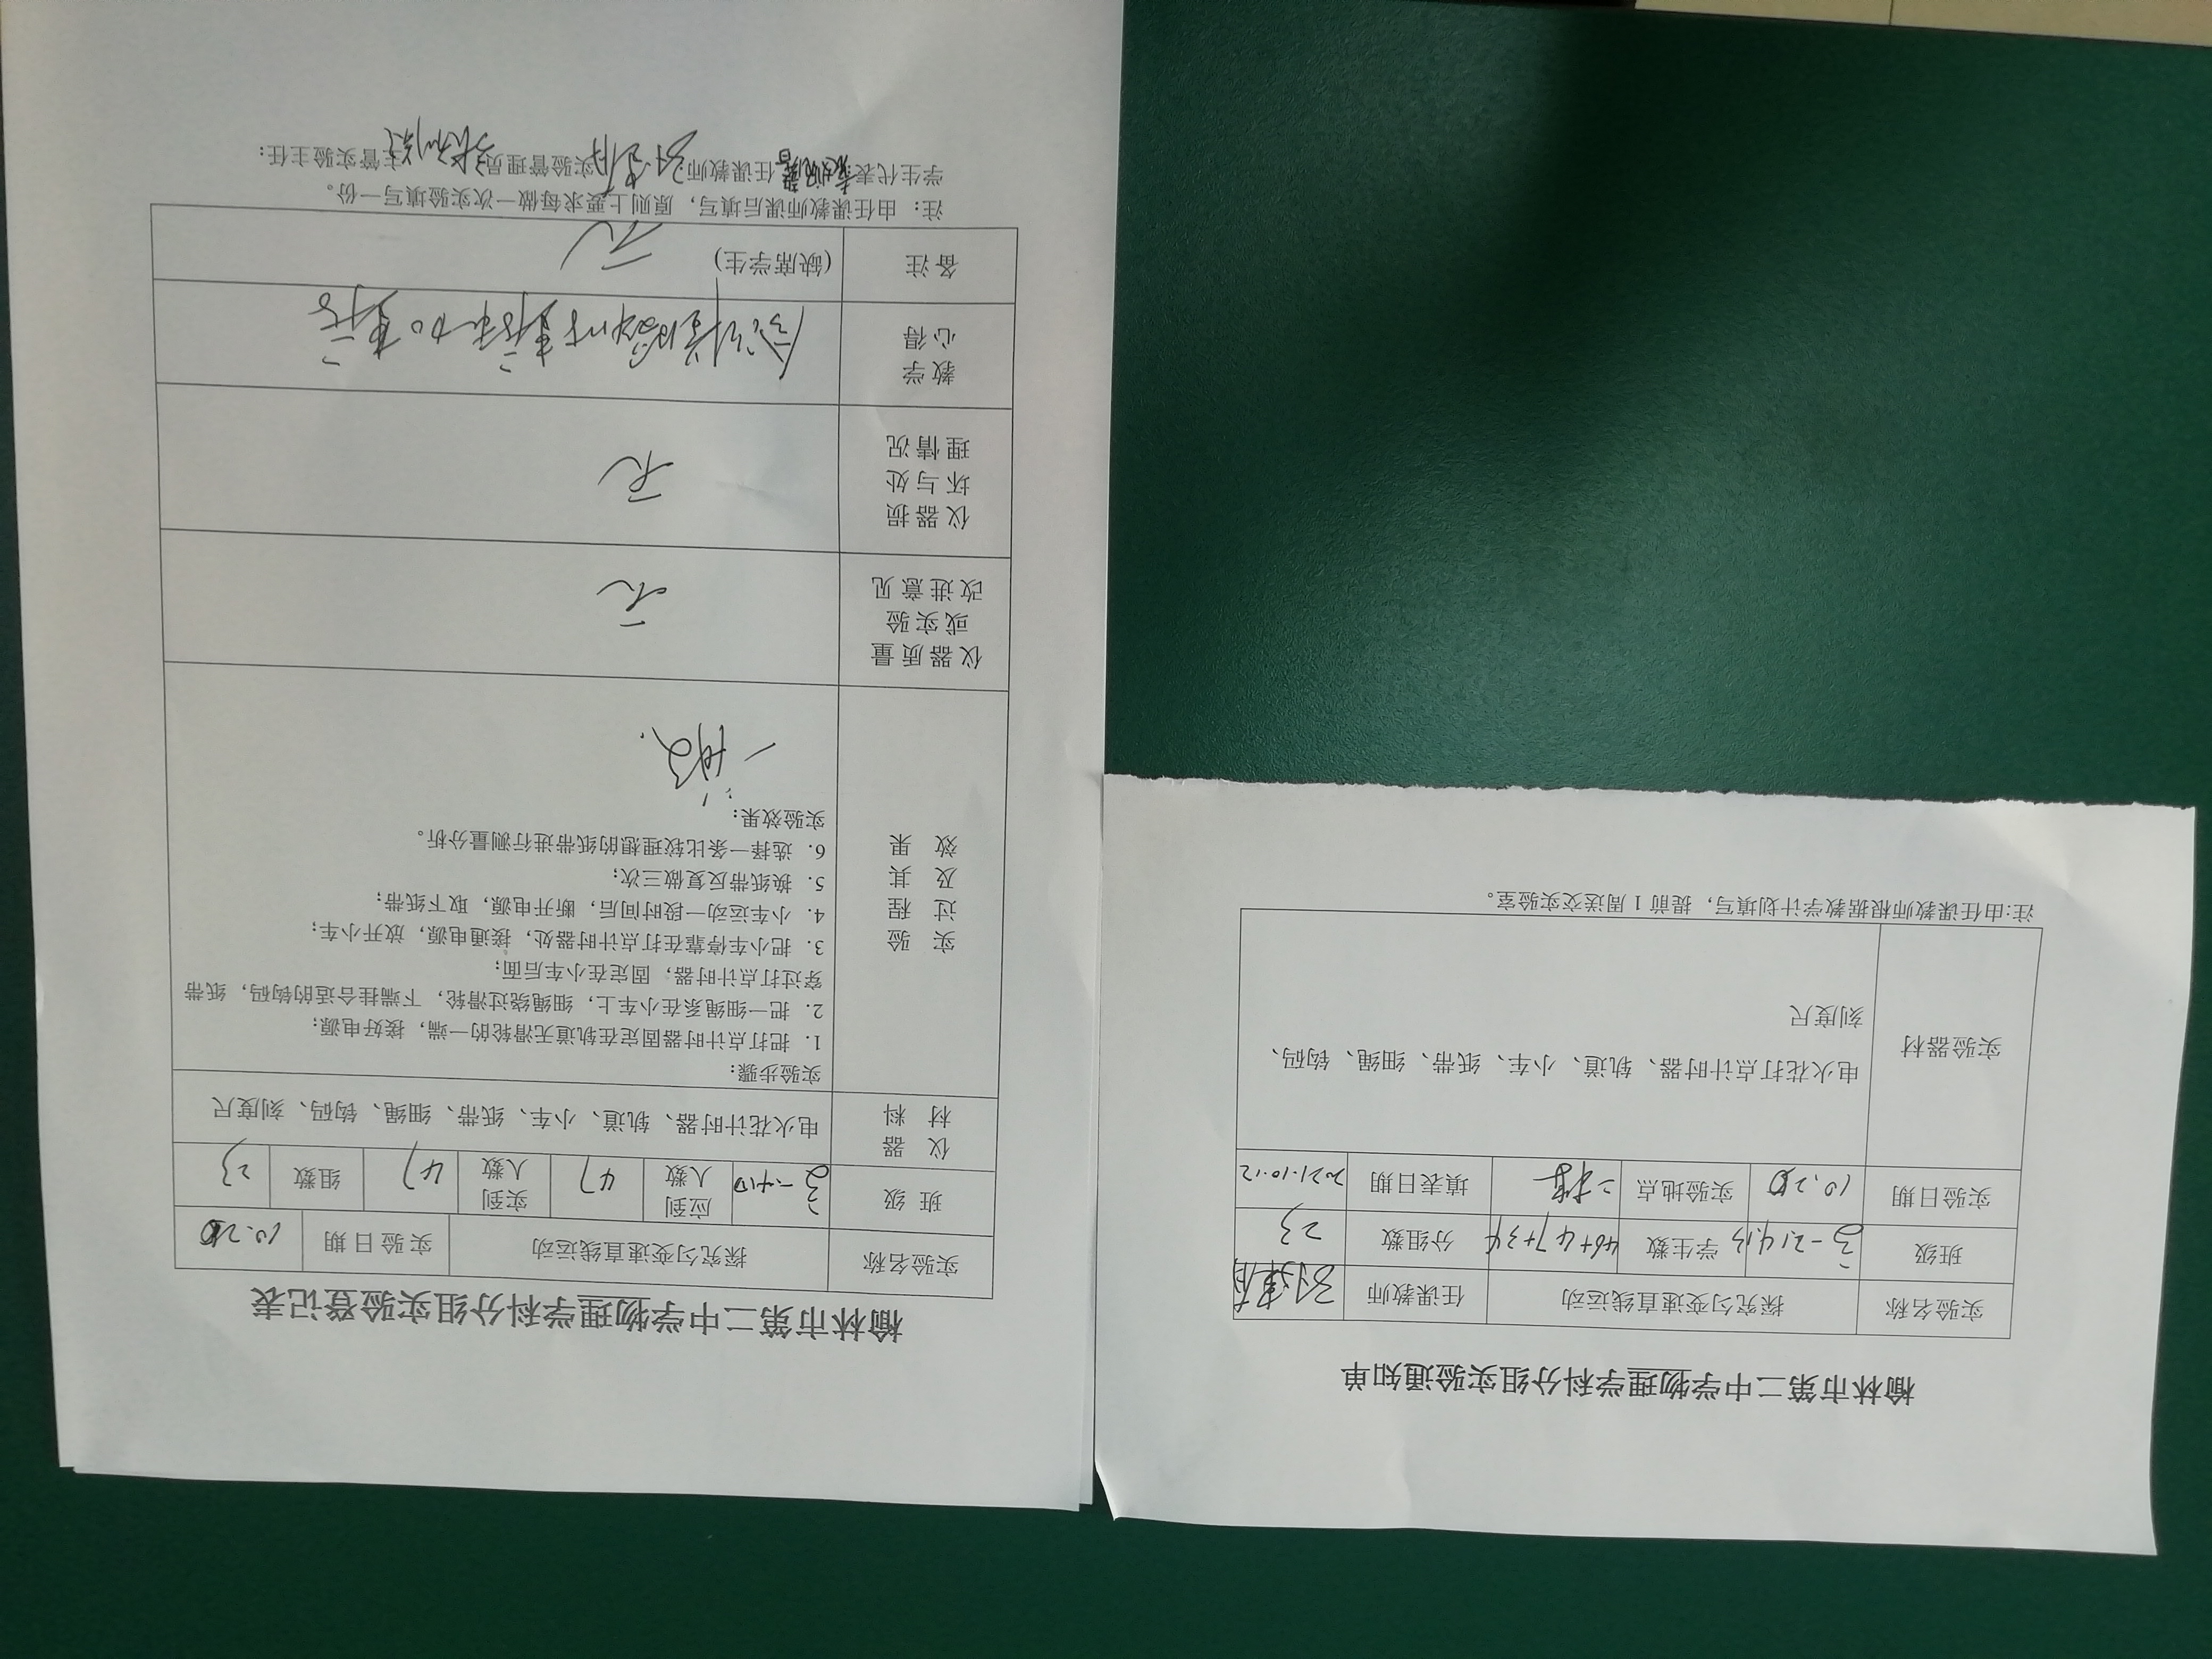 榆林市第二中学物理学科分组实验通知单
实验名称 探究匀变速直线运动 任课教师
班级 学生数 46+47+34 分组数 23
实验日期 10.20 实验地点 二楼 填表日期 2021.10.12
实验器材 电火花打点计时器、轨道、小车、纸带、细绳、钩码、
刻度尺
注:由任课教师根据教学计划填写，提前1周送交实验室。
榆林市第二中学物理学科分组实验登记表
实验名称 探究匀变速直线运动 实验日期 10.20
班级 应到人数 47 实到人数 47 组数 23
仪器材料 电火花计时器、轨道、小车、纸带、细绳、钩码、刻度尺
实验过程及其效果
实验步骤：
1. 把打点计时器固定在轨道无滑轮的一端，接好电源；
2. 把一细绳系在小车上，细绳绕过滑轮，下端挂合适的钩码，纸带
穿过打点计时器，固定在小车后面；
3. 把小车停靠在打点计时器处，接通电源，放开小车；
4. 小车运动一段时间后，断开电源，取下纸带；
5. 换纸带反复做三次；
6. 选择一条比较理想的纸带进行测量分析。
实验效果：
一般.
仪器质量或实验改进意见 无
仪器损坏与处理情况 无
教学心得
备注 (缺席学生) 无
注：由任课教师课后填写，原则上要求每做一次实验填写一份。
学生代表: 任课教师: 实验管理员: 主管实验主任: